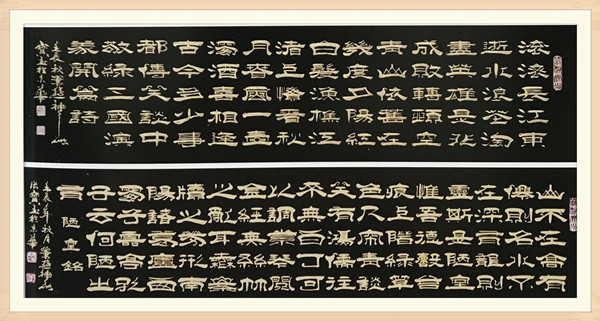 滚滚長江東
逝水浪花淘
盡英雄是非
成敗轉頭空
青山依舊在
幾度夕陽紅
白髮漁樵江
渚上慣看秋
月春風一壺
濁酒喜相逢
古今多少事
都傳笑談中
敬録三國演
義開篇詩
壬辰秋董
於京華
山不在高有
僊則名水不
在深有龍則
靈斯是陋室
惟吾德馨苔
痕上階緑草
色入簾青談
笑有鴻儒往
來無白丁可
以調素琴閲
金經無絲竹
之亂耳無案
牘之勞形南
陽諸葛廬西
蜀子雲亭孔
子云何陋之
有 陋室銘
壬辰年秋月董
於京華